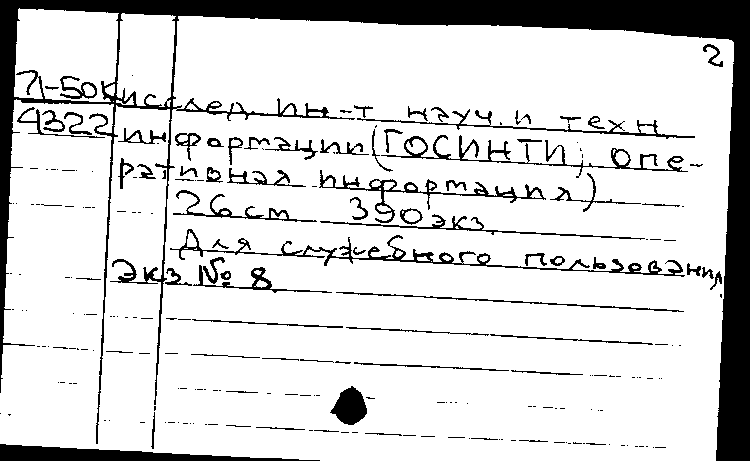 2
71-50к исслед. ин-т науч. и техн.
4322 информации (ГОСИНТИ; опе-
ративная информация).
26 cm 390 экз.
Для служебного пользования
Экз. № 8